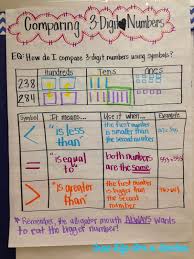 Comparing 3-Digit Numbers
EQ: How do I compare 3-digit numbers using symbols?
Hundreds Tens ones
238
284
Symbol It means... Use it when... Example
< "is less than" the first number is smaller than the second number
= "is equal to" both numbers are the same
> "is greater than" the first number is bigger than the second number
* Remember, the alligator mouth ALWAYS wants
to eat the bigger number!